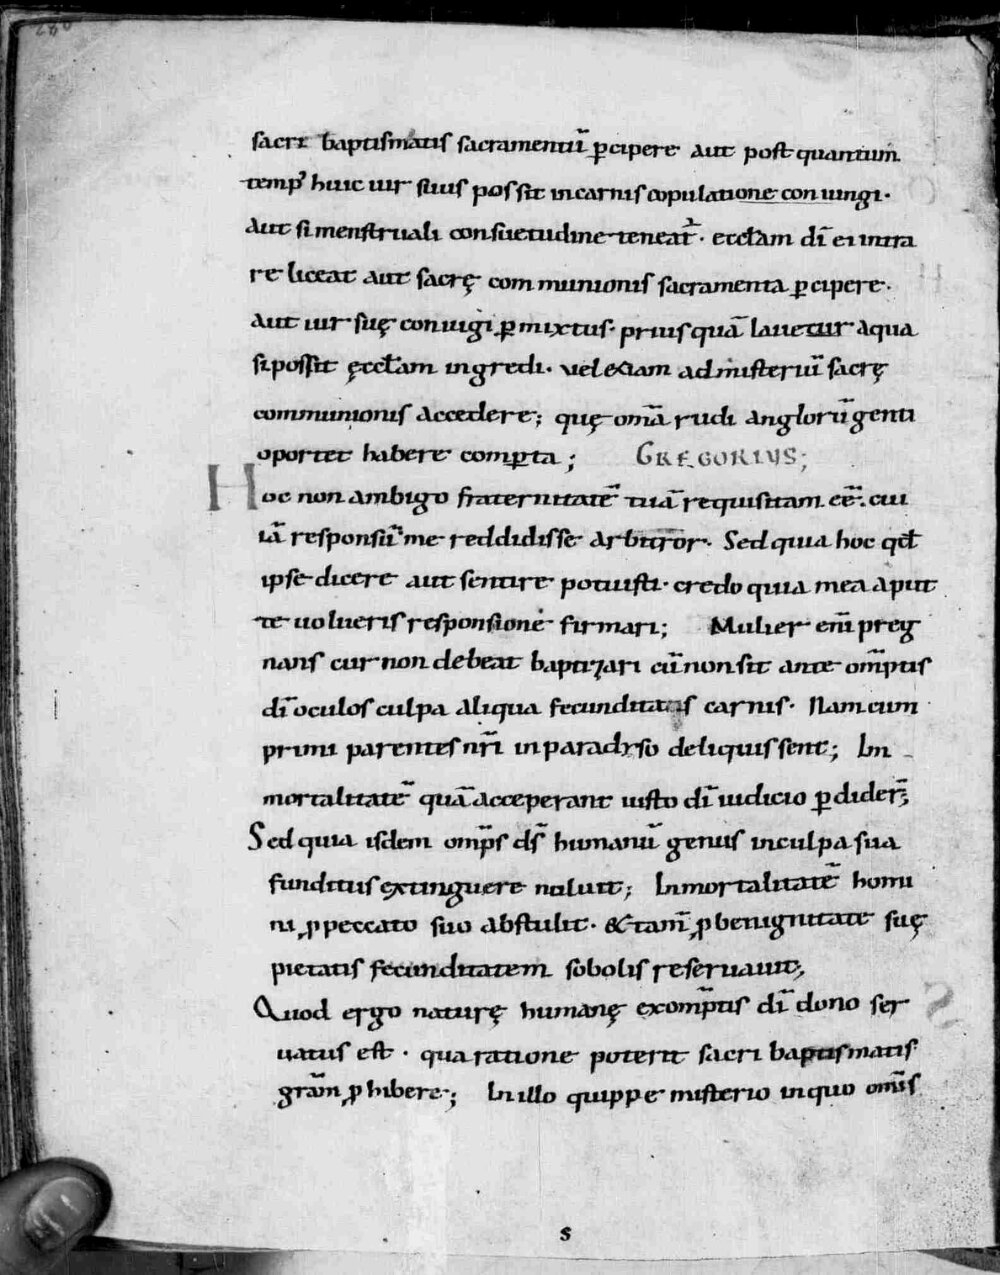 sacri baptismatis sacramentū ꝑcipere aut post quantum
temp᾽ huic uir suus possit in carnis copulatione coniungi·
Aut si menstruali consuetudine teneat᾽· eccƚam dī ei intra
re liceat aut sacrę communionis sacramenta ꝑcipere·
Aut uir suę coniugi ꝑmixtus· prius quā lauetur aqua
si possit ęccƚam ingredi· uel etiam ad misteriū sacrę
communionis accedere; quę om̄a rudi anglorū genti
oportet habere comꝑta; GREGORIUS;
Hoc non ambigo fraternitatē tuā requisitam eē· cui
iā responsū me reddidisse arbitror· Sed quia hoc qđ
ipse dicere aut sentire potuisti· credo quia mea aput
te uolueris responsione firmari; Mulier eni̅ preg
nans cur non debeat baptizari cū non sit ante om̅ptis
dī oculos culpa aliqua fecunditatis carnis· Nam cum
primi parentes nr̄i in paradyso deliquissent; In
mortalitatē quā acceperant iusto dī iudicio ꝑdider̄;
Sed quia isdem om̅ps ds̄ humanū genus in culpa sua
funditus extinguere noluit; Inmortalitatē homi
ni ꝓ peccato suo abstulit· & tam̄ ꝓ benignitate suę
pietatis fecunditatem sobolis reseruauit;
Quod ergo naturę humanę ex om̅ptis dī dono ser
uatus est· qua ratione poterit sacri baptismatis
gr̄am ꝓhibere; In illo quippe misterio in quo om̅is
s